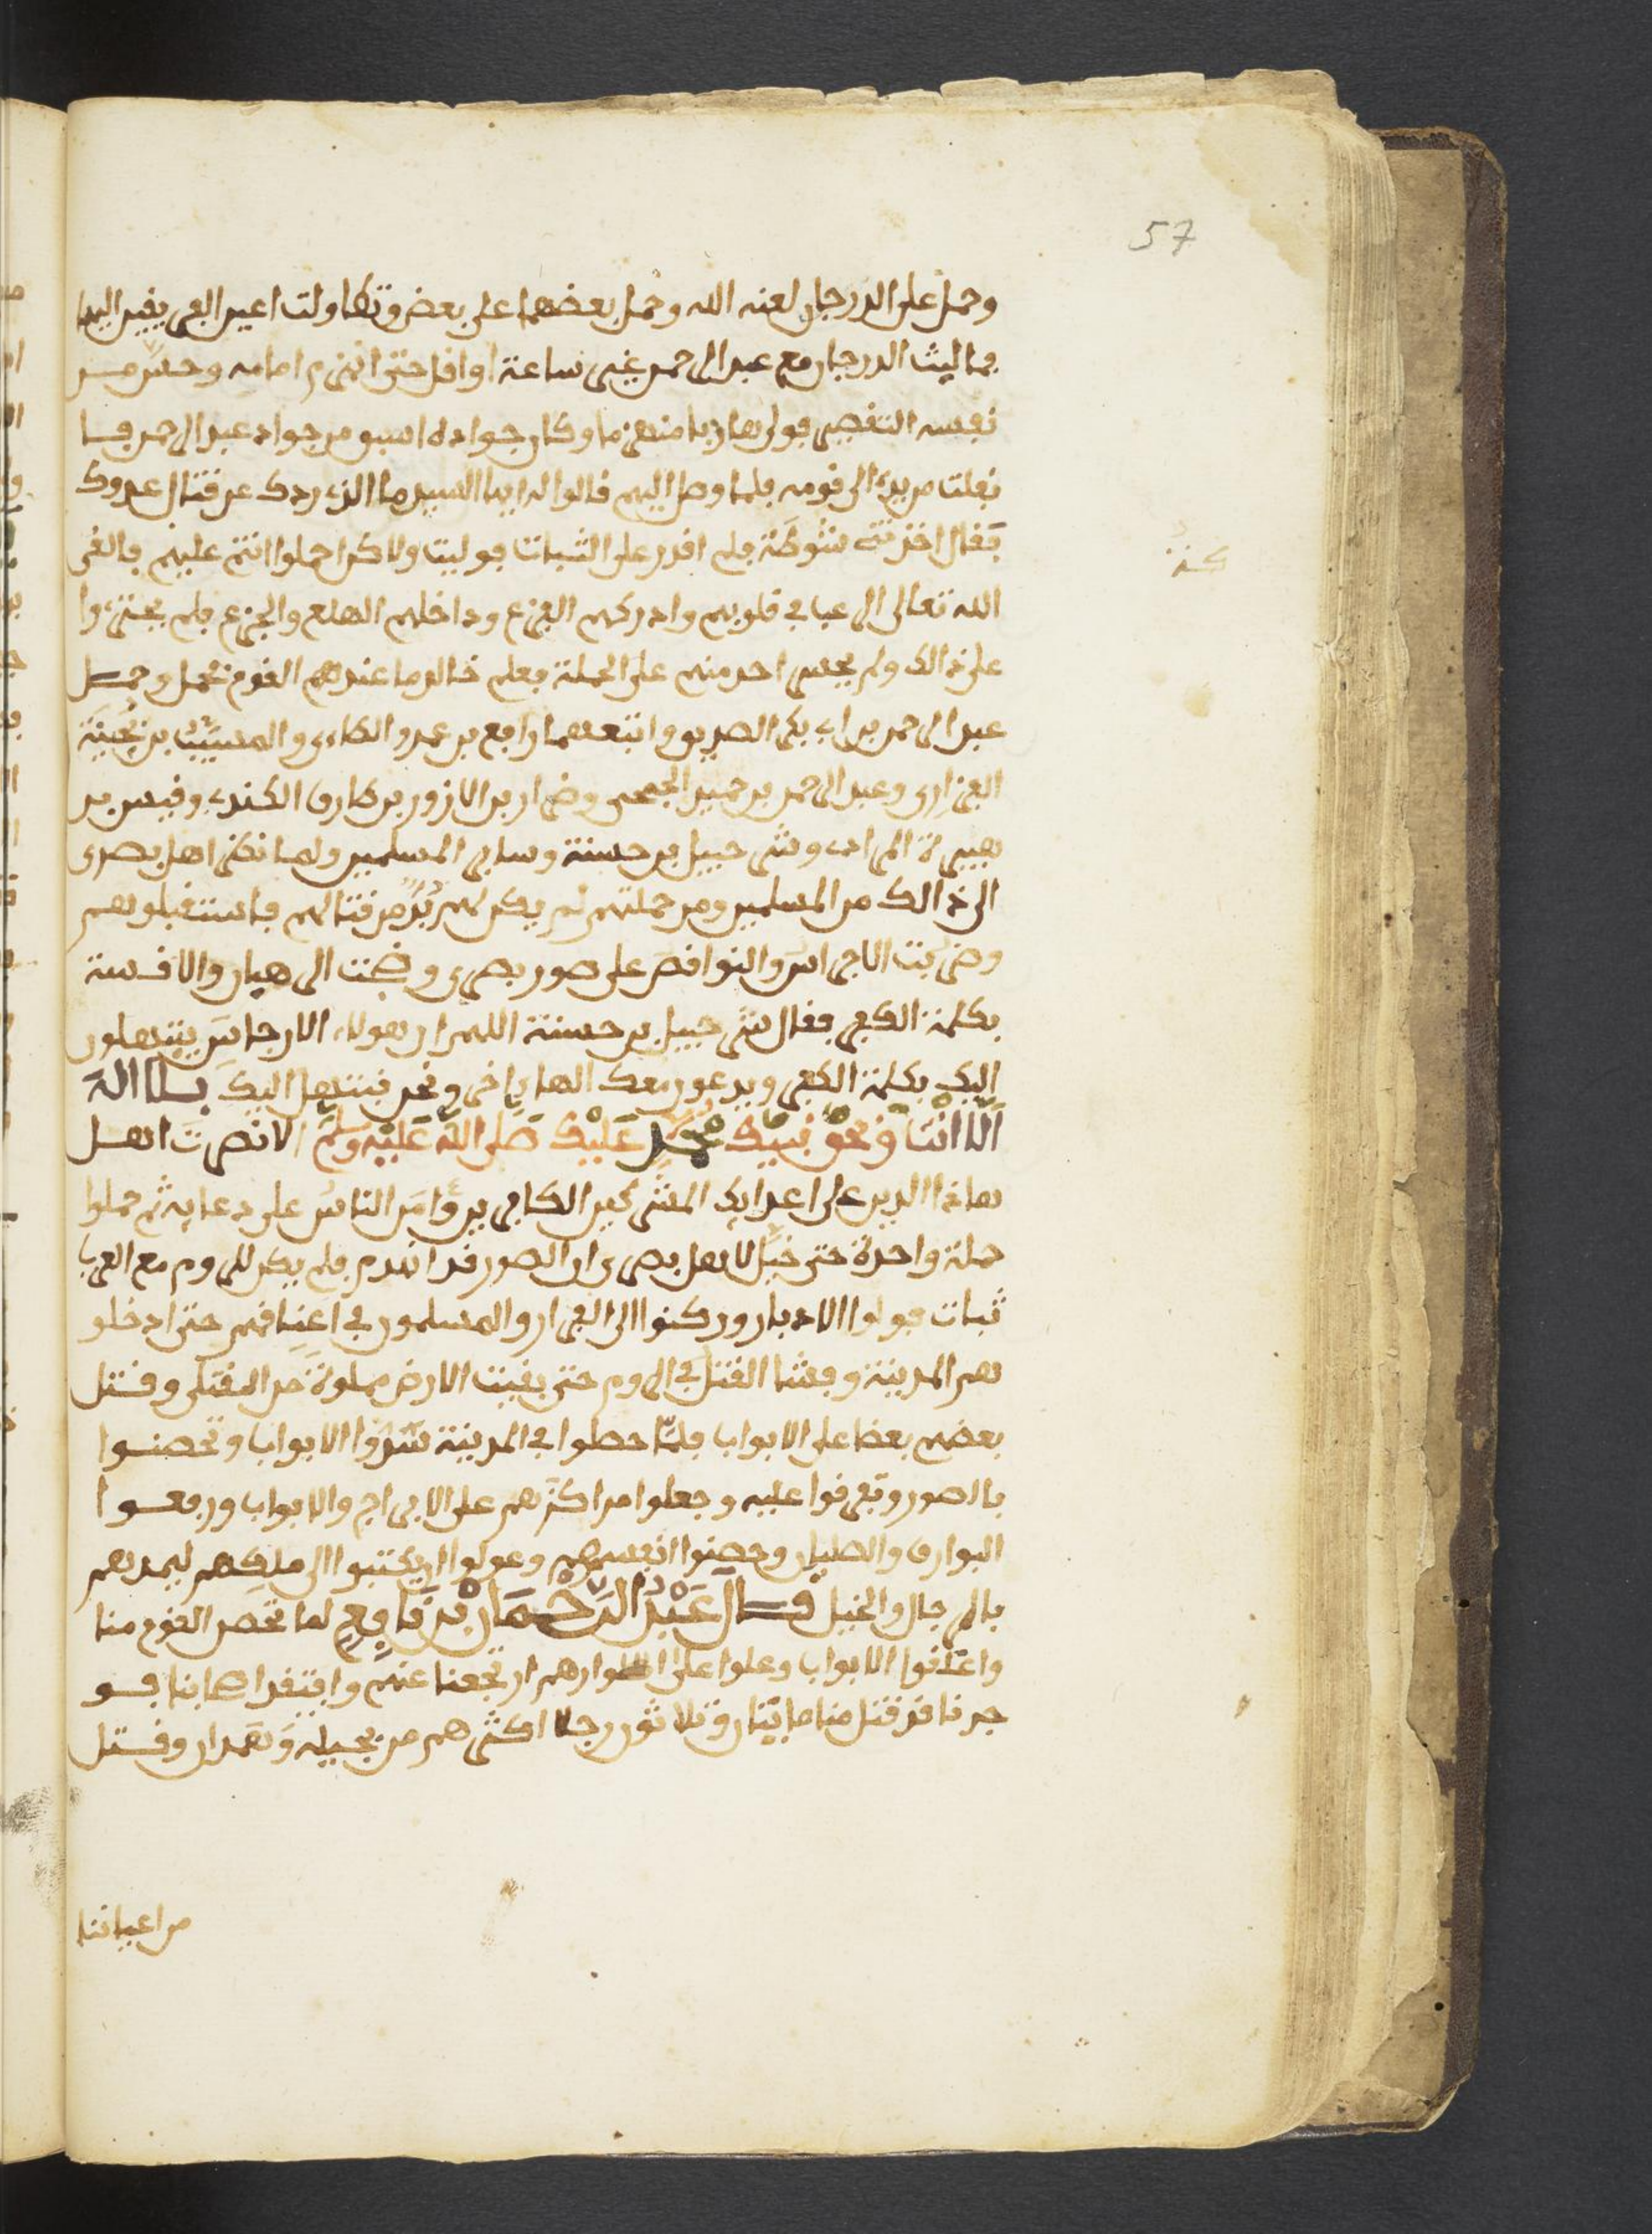 57
وحمل على الدرجان لعنه الله وحمل بعضهما على بعض وتطاولت اعين الفريقين اليهما
فما لبث الدرجان مع عبد الرحمن غير ساعة او اقل حتى انهزم امامه وحس من
نفسه التقصير فولى هاربا منهزما وكان جواده اسبق من جواد عبد الرحمن فا
نفلت من يده الى قومه فلما وصل اليهم قالوا له ايها السيد ما الذي ردك عن قتال عدوك
فقال اخذتني شوكة فلم اقدر على الثبات فوليت ولاكن احملوا انتم عليهم فالقى
الله تعالى الرعب في قلوبهم وادركهم الفزع وداخلهم الهلع والجزع فلم يجتروا
على ذالك ولم يجسر احد منهم على الحملة فعلم خالد ما عند القوم فحمل وحمل
عبد الرحمن بن ابي بكر الصديق واتبعهما رافع بن عمرو الطاءي والمسيب بن نجيبة
الفزاري وعبد الرحمن بن حميد الجمحي وضرار بن الازور بن طارق الكندي وقيس بن
هبيرة المرادي وشرحبيل بن حسنة وساير المسلمين ولما نظر اهل بصرى
الى ذالك من المسلمين ومن حملتهم لم يكن لهم بد من قتالهم فاستقبلوهم
وضربت الاجراس والنواقص على صور بصرى وضجت الرهبان والاقسة
بكلمة الكفر فقال شرحبيل بن حسنة اللهم ان هولاء الارجاس يبتهلون
اليك بكلمة الكفر ويدعون معك الها ءاخر ونحن نبتهل اليك بلا اله
الا انت وبحق نبيك محمد عليك صلى الله عليه وسلم الا نصرت اهل
هاذا الدين على اعدايك المشركين الكافرين وامن الناس على دعايه ثم حملوا
حملة واحدة حتى خيل لاهل بصرى ان الصور قد انهدم فلم يكن للروم مع العرب
ثبات فولوا الادبار وركنوا الى الفرار والمسلمون في اعناقهم حتى ادخلو
هم المدينة وفشا القتل في الروم حتى بقيت الارض مملوة من القتلى وقتل
بعضهم بعضا على الابواب فلما حصلوا في المدينة شدوا الابواب وتحصنوا
بالصور وتفرقوا عليه وجعلوا مراكزهم على الابراج والابواب ورفعوا
البوارق والصلبان وحصنوا انفسهم وعولوا ان يكتبوا الى ملكهم ليمدهم
بالرجال والخيل قال عبد الرحمان بن رافع لما تحصن القوم منا
واغلقوا الابواب وعلوا على اصوارهم ارتجعنا عنهم وافتقد اصحابنا فو
جدنا قد قتل منا مايتان وثلاثون رجلا اكثرهم من بجيلة وهمدان وقتل
من اعياننا